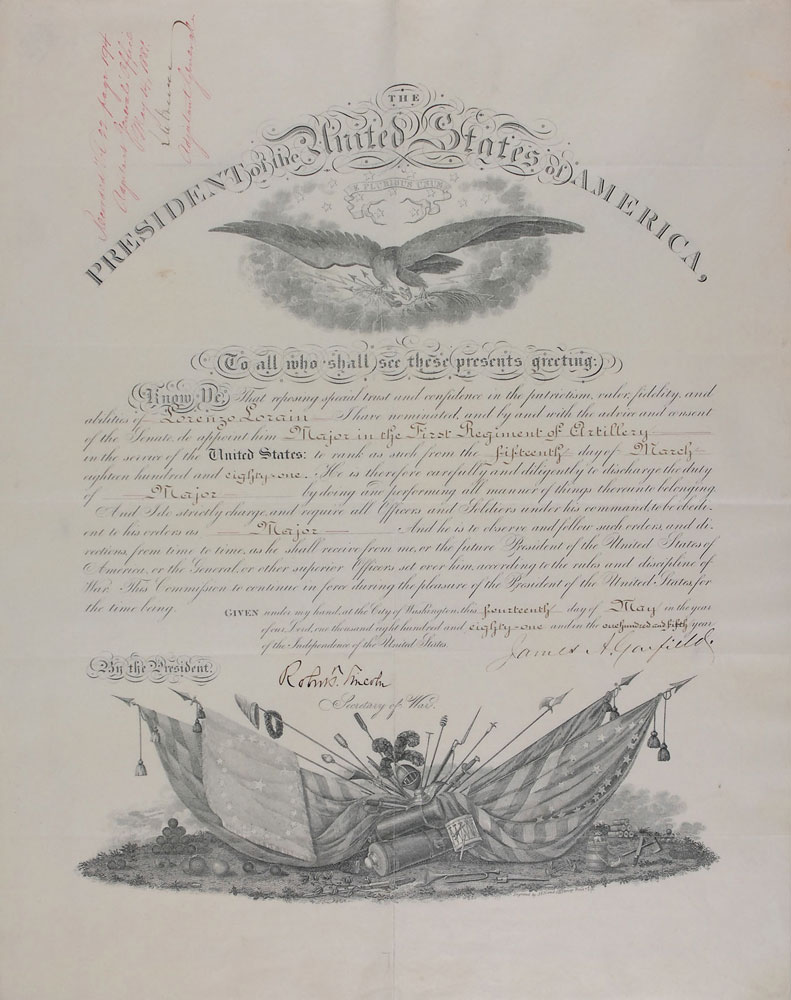 Recorded Vol 22 page 194
Adjutant General's Office
May 14, 1881.
Adjutant General
THE
PRESIDENT of the United States of AMERICA,
E PLURIBUS UNUM
To all who shall see these presents greeting:
Know Ye, That reposing special trust and confidence in the patriotism, valor, fidelity, and
abilities of Lorenzo Lorain I have nominated, and by and with the advice and consent
of the Senate, do appoint him Major in the First Regiment of Artillery
in the service of the United States: to rank as such from the fifteenth day of March
eighteen hundred and eighty-one. He is therefore carefully and diligently to discharge the duty
of Major by doing and performing all manner of things thereunto belonging.
And I do strictly charge, and require all Officers and Soldiers under his command, to be obedi-
ent to his orders as Major And he is to observe and follow such orders, and di-
rections, from time to time, as he shall receive from me, or the future President of the United States of
America, or the General, or other superior Officers set over him, according to the rules and discipline of
War. This Commission to continue in force during the pleasure of the President of the United States, for
the time being.
GIVEN under my hand, at the City of Washington, this fourteenth day of May in the year
of our Lord, one thousand eight hundred and eighty-one and in the one hundred and fifth year
of the Independence of the United States.
James A. Garfield
By the President
Robt. T. Lincoln
Secretary of War.